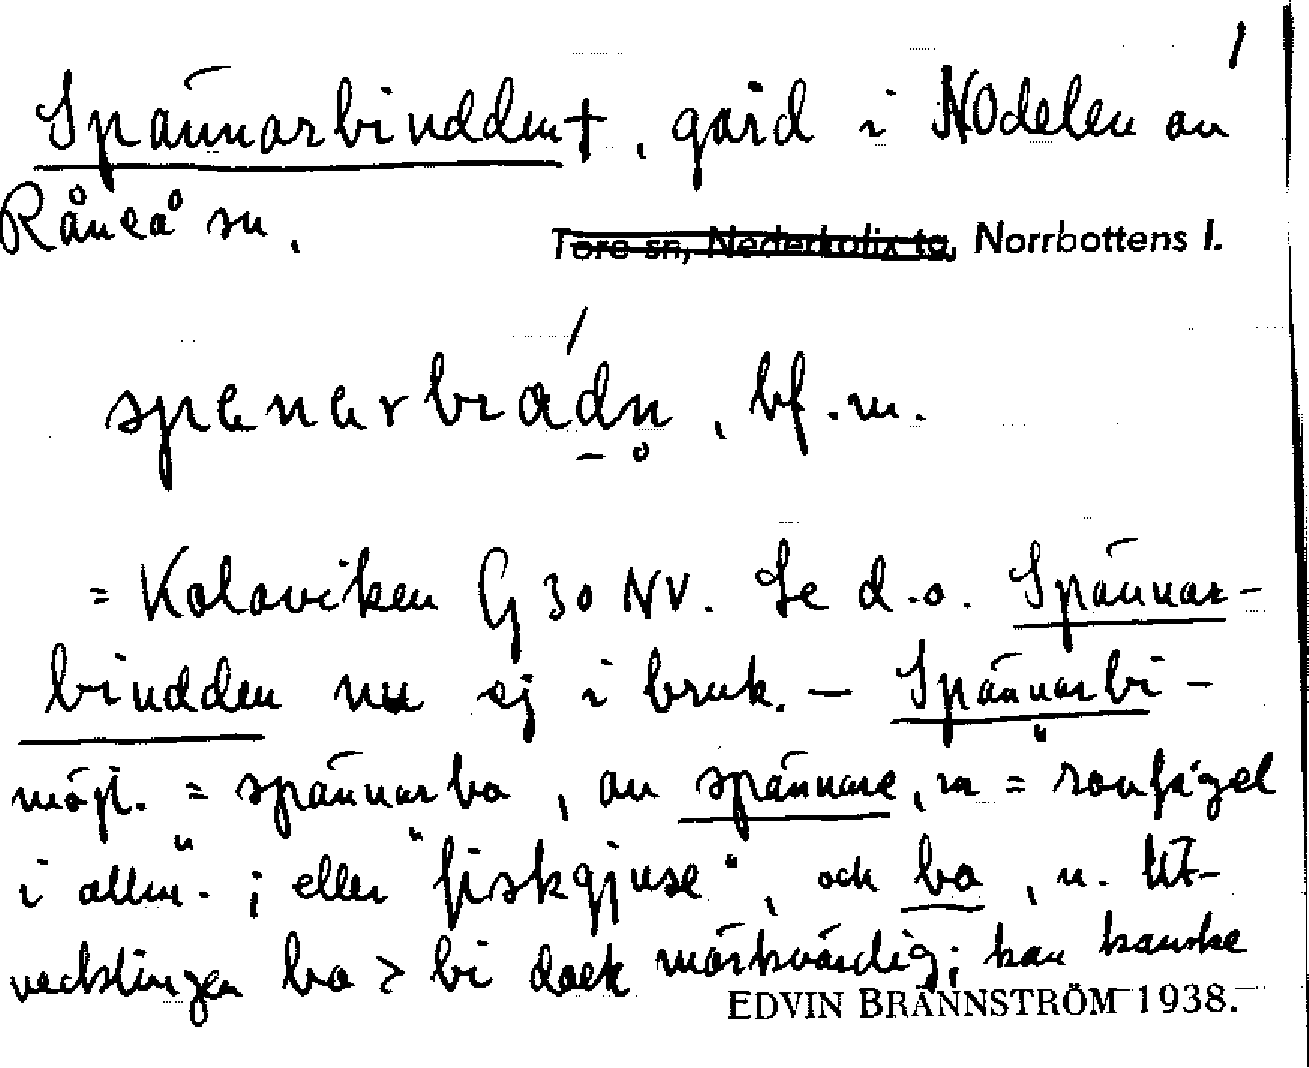 Spännarbindden†, gård i NOdelen av
Råneå sn.
Töre sn, Nederkalix tg, Norrbottens l.
spænarbrádn̥, bf. m.
= Kolaviken G 30 NV. Se d.o. Spännar-
bindden nu ej i bruk. — Spännarbi-
möjl. = spännarbo, av spännare, m = "rovfågel
i allm." ; eller "fiskgjuse", och bo, n. Ut-
vecklingen bo > bi dock märkvärdig; kan kanske
EDVIN BRÄNNSTRÖM 1938.